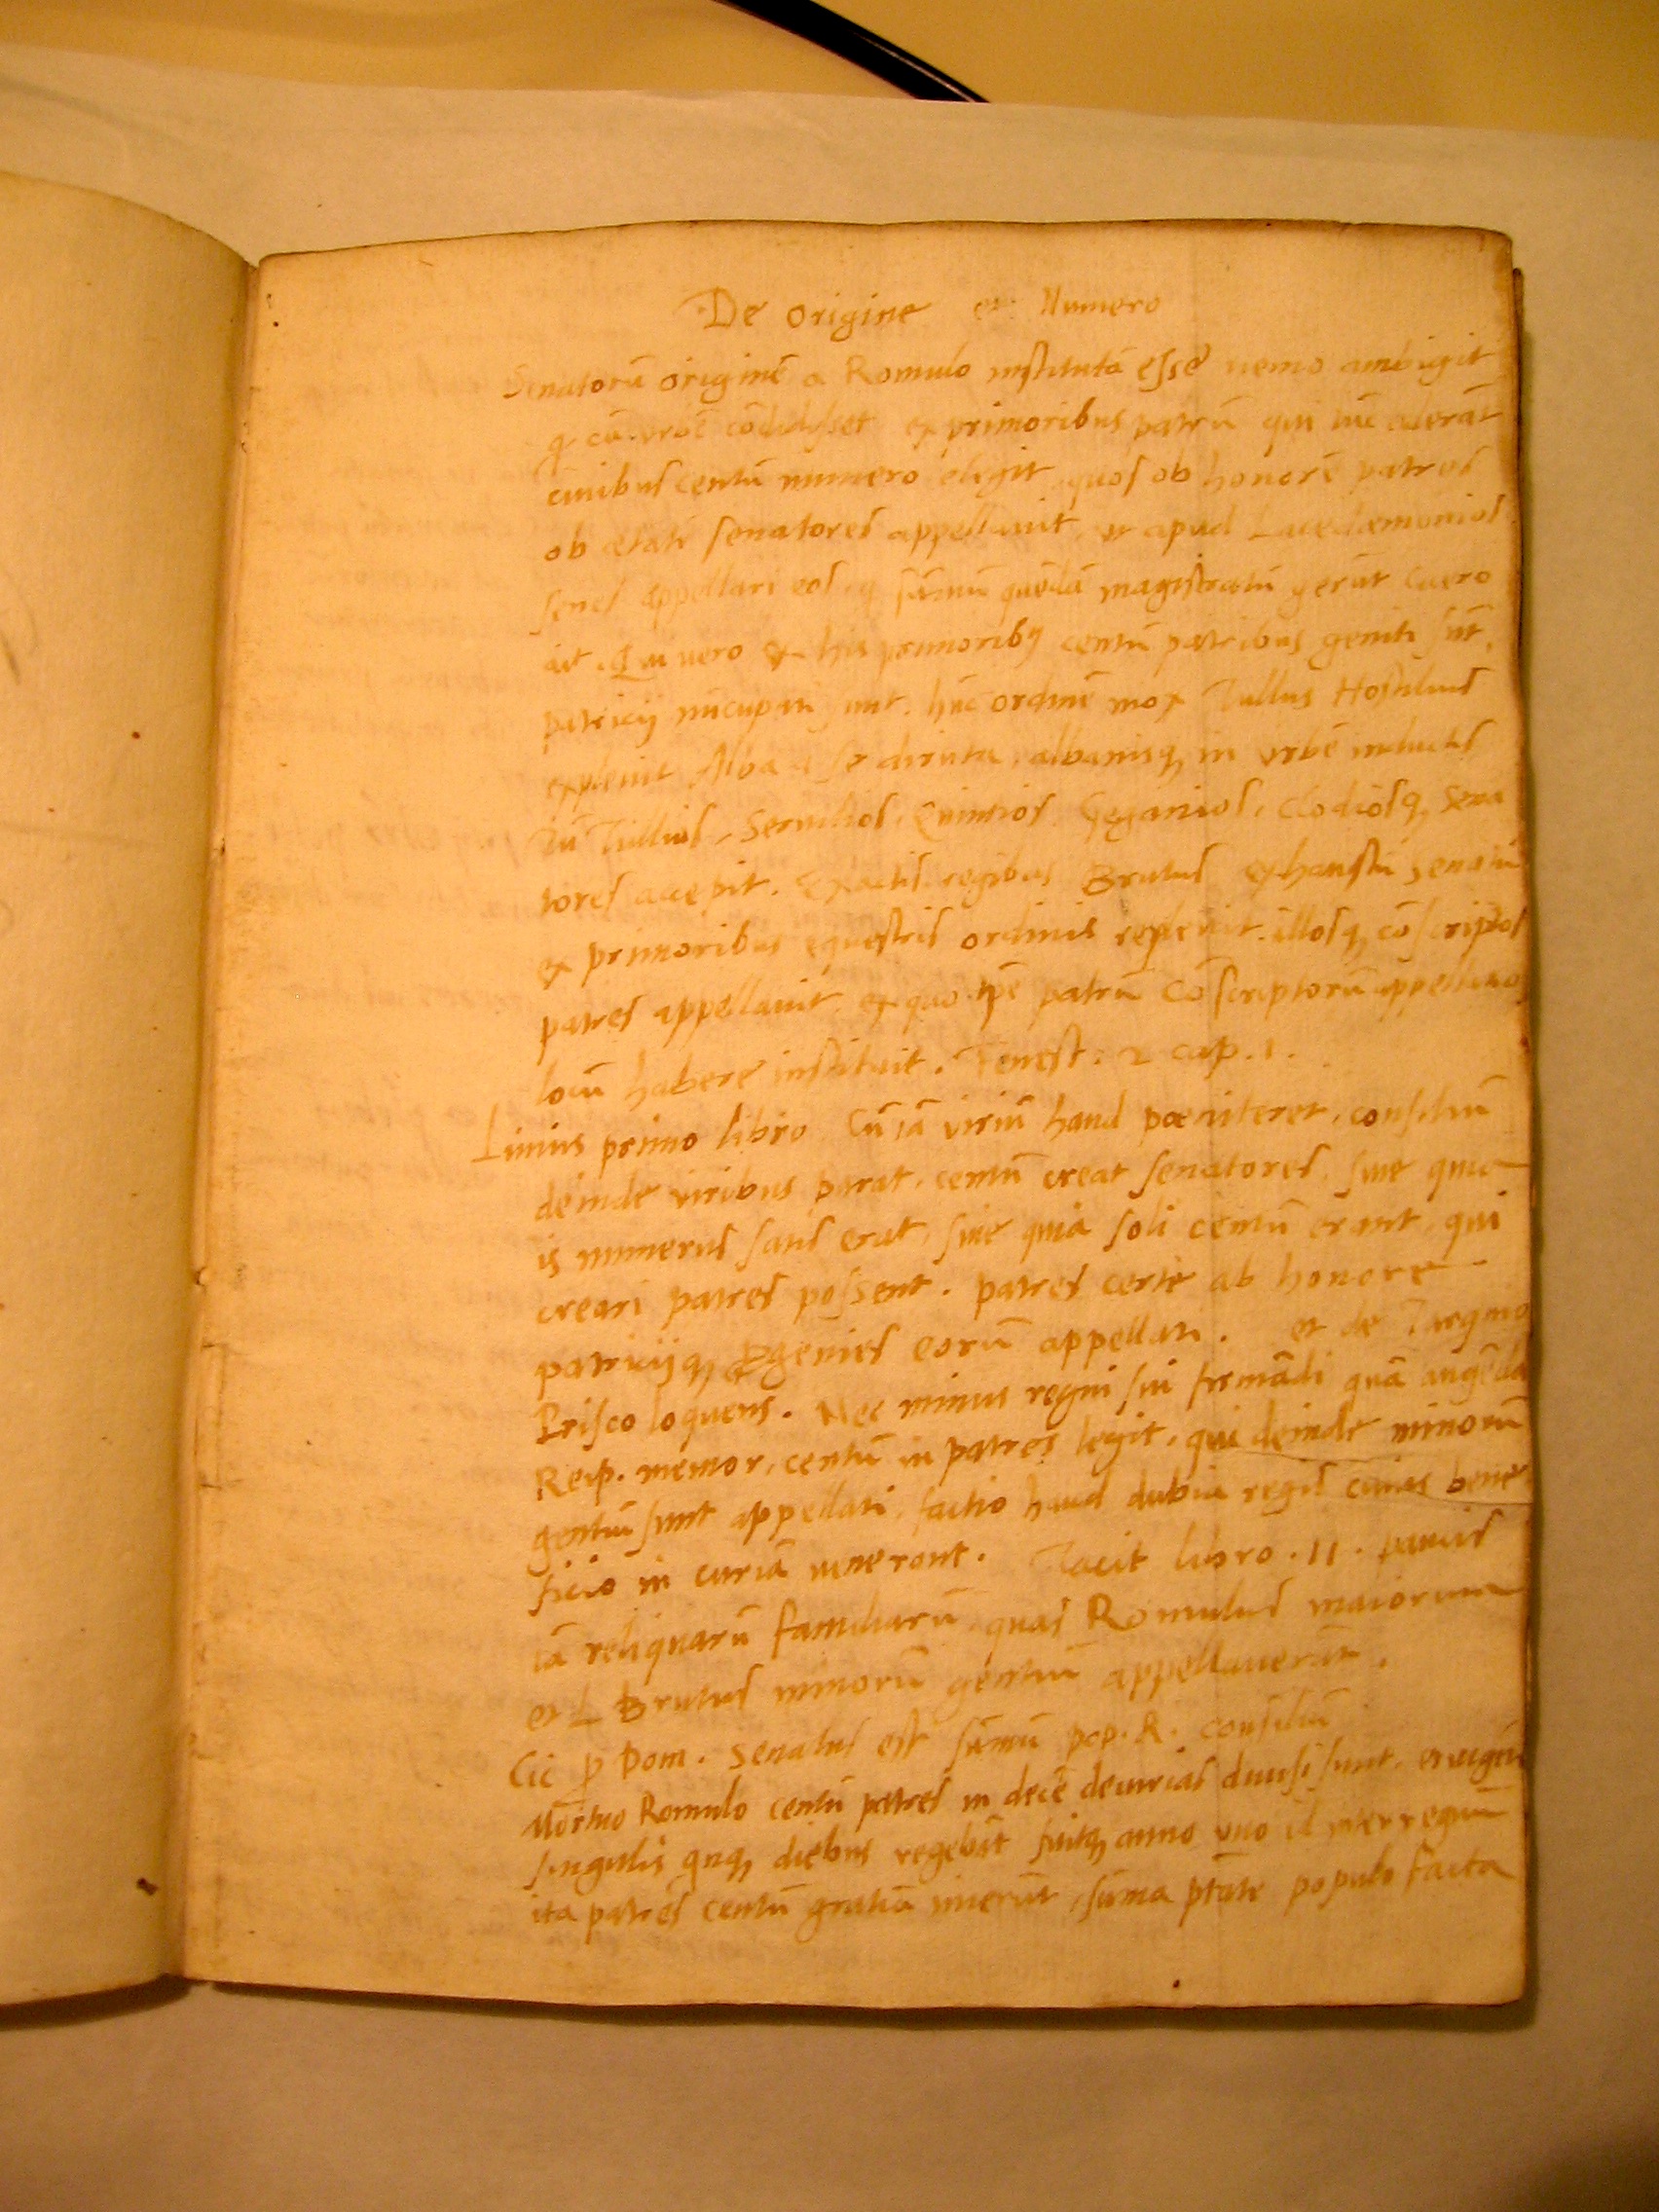 De origine et Numero
Senatorū originē a Romulo institutā esse nemo ambigit
q cū vrbē cōdidisset ex primoribus patrū qui tūc aderāt
ciuibus centū numero elegit quos ob honorē patres
ob ætatē senatores appellauit, ut apud Lacedæmonios
senes appellari eos, q sūmū quēdā magistratū gerūt Cicero
ait. Qui vero ex his primoribꝰ centū patribus geniti sūt,
patricij nūcupati sunt. hūc ordinē mox Tullus Hostilius
expleuit Alba a se diruta, albanisq, in vrbē inductis
Tū Tullios, Seruilios, Quintios Geganios, Clodiosq, sena
tores accepit. Exactis regibus Brutus exhaustū senatū
ex primoribus equestris ordinis repleuit. illosq, cōscriptos
patres appellauit, ex quo tpē patrū Cōscriptorū appellatio
locū habere instituit. Fenest: 2 cap. 1.
Liuius primo libro Cū iā viriū haud poeniteret, consiliū
deinde viribus parat, centū creat senatores, siue quia
is numerus satis erat, siue quia soli centū erant, qui
creari patres possent. patres certe ab honore
patricijq, ꝓgenies eorū appellati. et de Tarqnio
Prisco loquens. Nec minus regni sui firmādi quā augēda
Reip. memor, centū in patres legit, qui deinde minorū
gentiū sunt appellati, factio haud dubia regis cuius bene
ficio in curiā venerant. Tacit libro. 11. paucis
iā reliquarū familiarū, quas Romulus maiorum
et L Brutus minorū gentiū appellauerūt.
Cic ꝓ Dom. Senatus est sūmū pop. R. consiliū
Mortuo Romulo centū patres in decē decurias diuisi sunt,
singulis qnq, diebus regebāt fuitq, anno vno id interregnū
ita patres centū gratiā inierūt, sūma ptāte populo facta